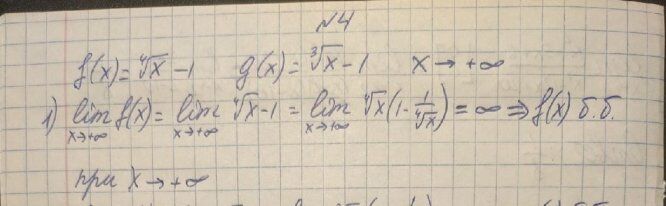 №4
f(x) = ⁴√x - 1 g(x) = ³√x - 1 x → +∞
1) lim x→+∞ f(x) = lim x→+∞ ⁴√x - 1 = lim x→+∞ ⁴√x (1 - 1/⁴√x) = ∞ ⇒ f(x) б.б.
при x → +∞